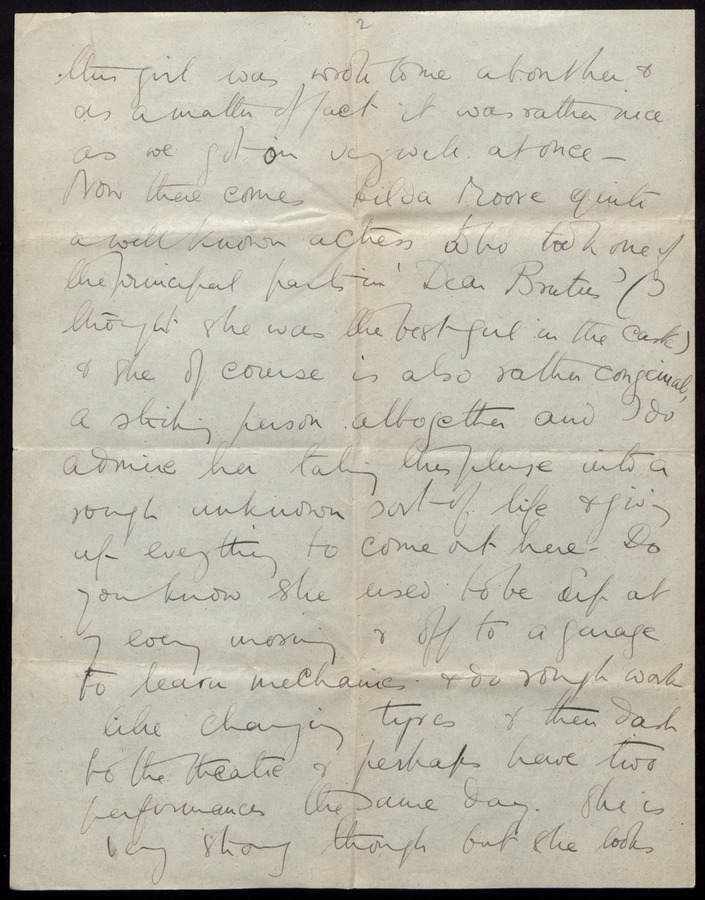 2
this girl was wrote to me about her &
as a matter of fact it was rather nice
as we got on very well at once —
Now there comes Hilda Moore quite
a well known actress who took one of
the principal parts in 'Dear Brutus' (I
thought she was the best girl in the cast)
& she of course is also rather congenial,
a striking person altogether and I do
admire her taking this plunge into a
rough unknown sort of life & giving
up everything to come out here - Do
you know she used to be up at
7 every morning & off to a garage
to learn mechanics & do rough work
like changing tyres & then dash
to the theatre & perhaps have two
performances the same day. She is
very strong though but she looks